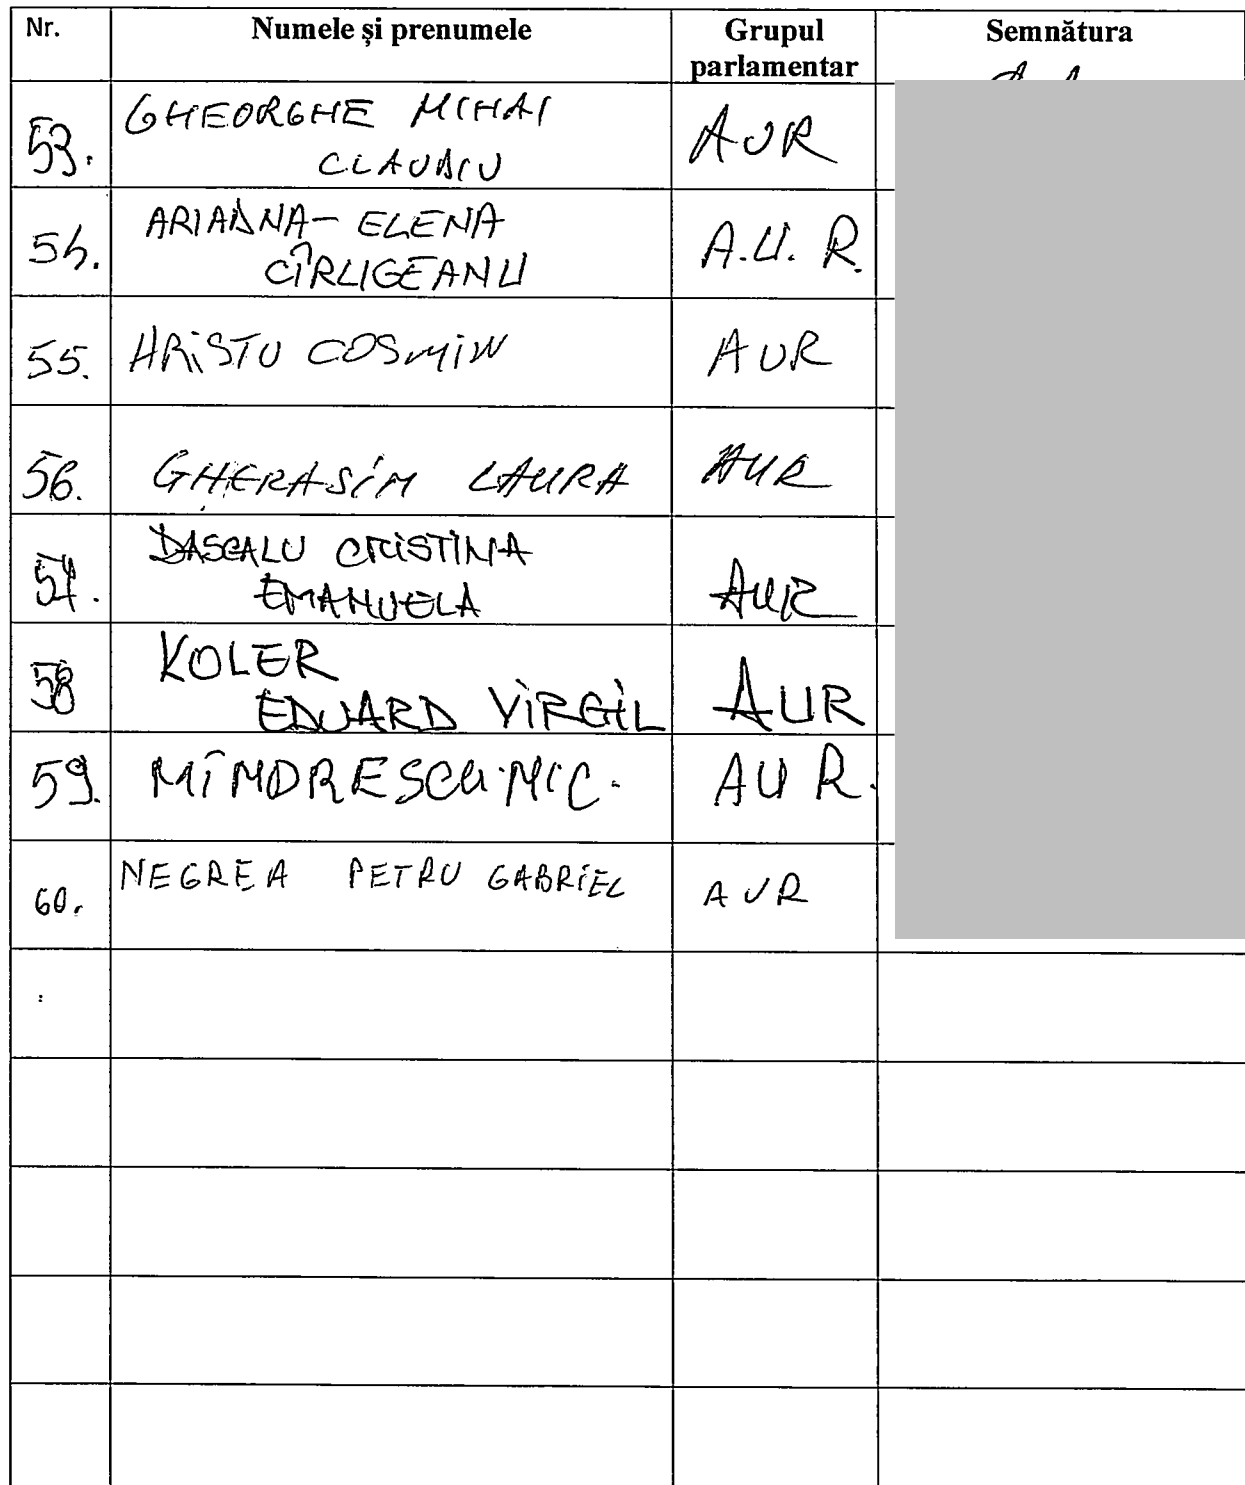 Nr. Numele și prenumele Grupul parlamentar Semnătura
53. GHEORGHE MIHAI
CLAUDIU AUR
54. ARIADNA-ELENA
CÎRLIGEANU A.U.R.
55. HRISTU COSMIN AUR
56. GHERASIM LAURA AUR
57. DASCALU CRISTINA
EMANUELA AUR
58 KOLER
EDUARD VIRGIL AUR
59. MÎNDRESCU NIC. AUR.
60. NEGREA PETRU GABRIEL AUR